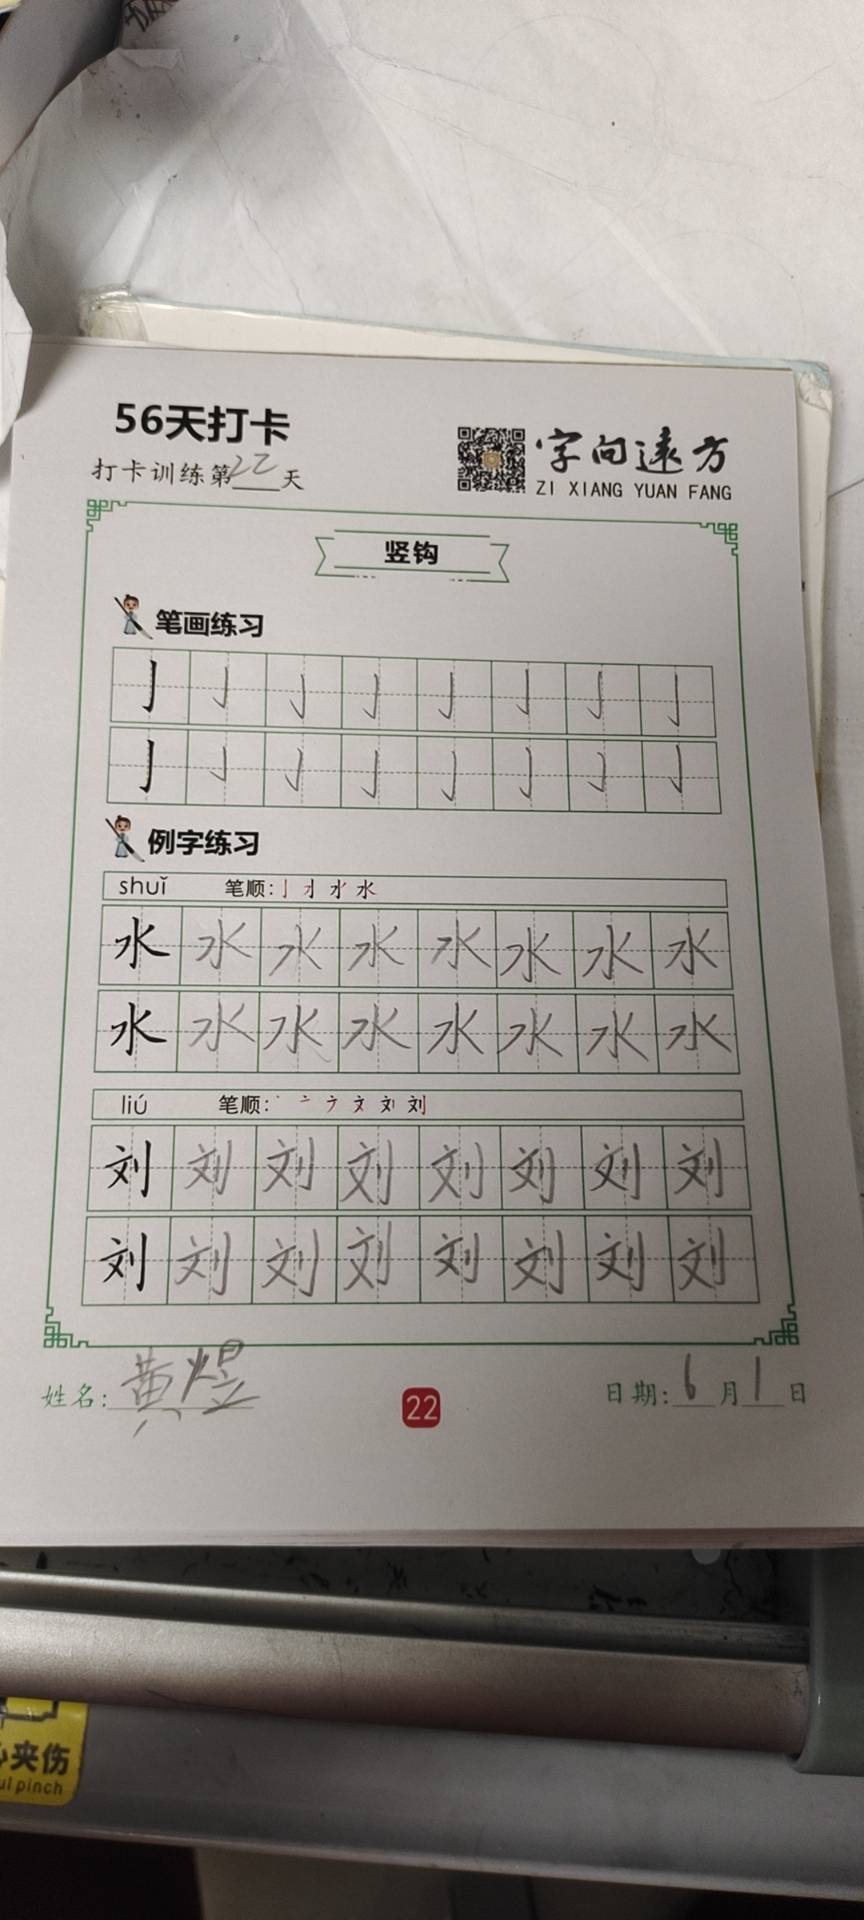 56天打卡
打卡训练第22天
字向远方
ZI XIANG YUAN FANG
竖钩
笔画练习
亅 亅 亅 亅 亅 亅 亅 亅
亅 亅 亅 亅 亅 亅 亅 亅
例字练习
shuǐ 笔顺: 水
水 水 水 水 水 水 水 水
水 水 水 水 水 水 水 水
liú 笔顺: 丶 亠 ナ 文 刘 刘
刘 刘 刘 刘 刘 刘 刘 刘
刘 刘 刘 刘 刘 刘 刘 刘
姓名: 黄煜
22
日期: 6 月 1 日
夹伤
pinch